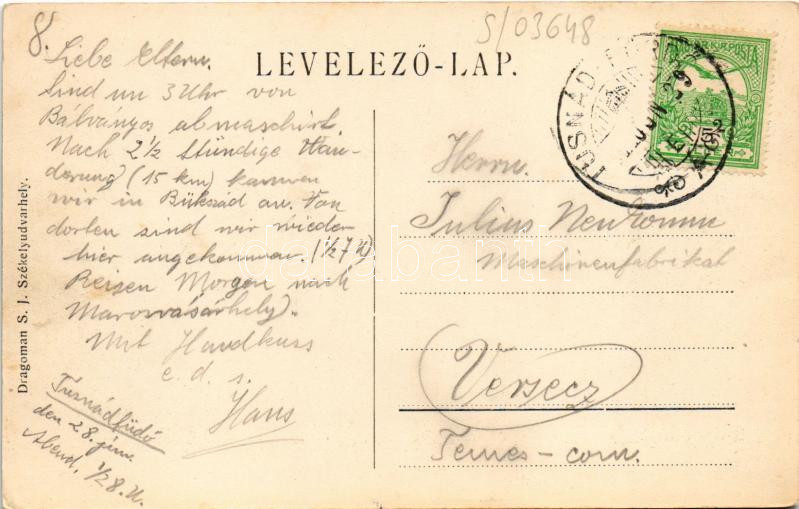 8.
S/03648
LEVELEZŐ-LAP.
Liebe Eltern.
Sind um 3 Uhr von
Bálványos abmaschirt.
Nach 2½ stündige Wan-
derung (15 km) kammen
wir in Bükszad an. Von
dorten sind wir wieder
hier angekommen (½7 U)
Reisen Morgen nach
Marosvásárhely).
Mit Handkuss
e. d. s.
Hans
Tusnádfüdő
den 28. jun.
Abend, ½8. U.
Dragoman S. J. Székelyudvarhely.
TUSNÁD
MAGYAR KIR. POSTA
Herrn.
Julius Neukomm
Maschinenfabrikat
Versecz
Temes-com.
darabanth